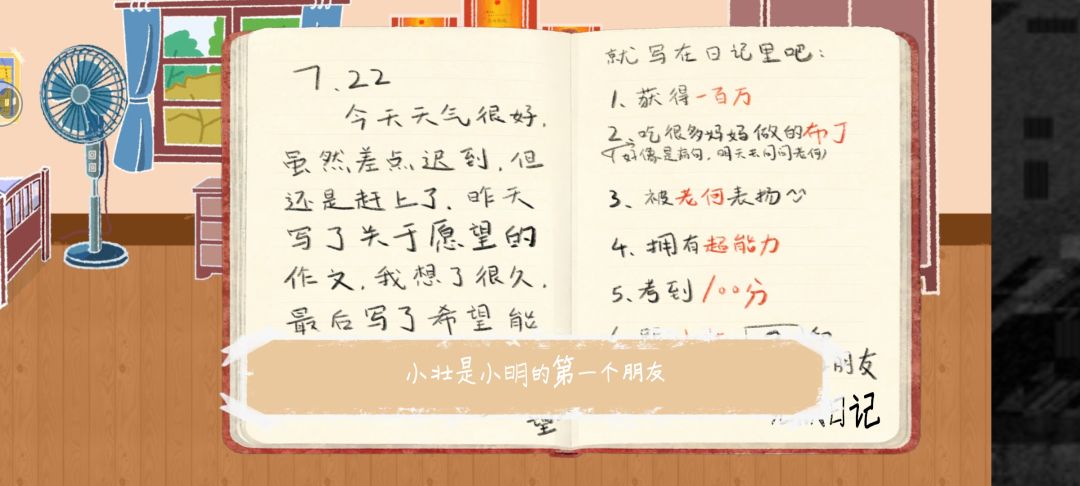 7.22
今天天气很好.
虽然差点迟到,但
还是赶上了.昨天
写了关于愿望的
作文,我想了很久.
最后写了希望能
望
就写在日记里吧:
1、获得一百万
2、吃很多妈妈做的布丁
(好像是病句,明天去问问老何)
3、被老何表扬
4、拥有超能力
5、考到100分
朋友
日记
小壮是小明的第一个朋友